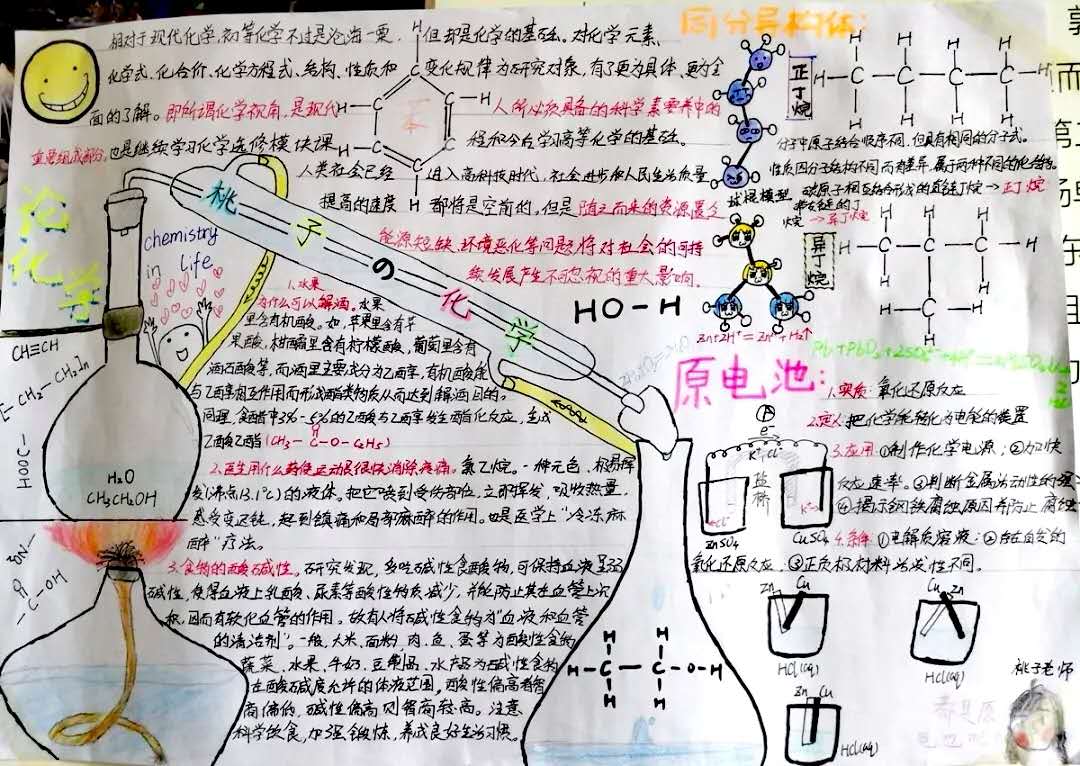 相对于现代化学,初等化学不过是沧海一粟,但却是化学的基础。对化学元素、
化学式、化合价、化学方程式、结构、性质和变化规律为研究对象,有了更为具体、更为全
面的了解。即所谓化学视角,是现代人所必须具备的科学素要养中的
重要组成部分,也是继续学习化学选修模块课程和今后学习高等化学的基础。
人类社会已经进入高科技时代,社会进步和人民生活质量
提高的速度都将是空前的,但是随之而来的资源匮乏
能源短缺、环境恶化等问题将对社会的可持
续发展产生不可忽视的重大影响。
H
H
H
H
H
H
C
C
C
C
C
C
苯
论
化学
桃子の化学
chemistry
in life
1.水果
为什么可以解酒。水果
里含有机酸。如,苹果里含有苹
果酸,柑橘里含有柠檬酸,葡萄里含有
酒石酸等,而酒里主要成分为乙醇,有机酸能
与乙醇相互作用而形成酯类物质从而达到解酒目的。
同理,食醋中3%-5%的乙酸与乙醇发生酯化反应,生成
乙酸乙酯(CH3-C-O-C2H5)
O
2.医生用什么药使运动员很快消除疼痛。氯乙烷。一种无色、极易挥
发(沸点13.1℃)的液体。把它喷到受伤部位,立即挥发,吸收热量,
感受变迟钝,起到镇痛和局部麻醉的作用。也是医学上"冷冻麻
醉"疗法。
3.食物的酸碱性。研究发现,多吃碱性食酸物,可保持血液呈弱
碱性,使得血液上乳酸、尿素等酸性物质减少,并能防止其在血管上沉
积,因而有软化血管的作用。故有人将碱性食物为"血液和血管
的清洁剂"。一般,大米、面粉、肉、鱼、蛋等为酸性食物
蔬菜、水果、牛奶、豆制品、水产品为碱性食物
在酸碱度允许的体液范围,酸性偏高者智
商偏低,碱性偏高则智商较高。注意
科学饮食,加强锻炼,养成良好生活习惯。
CH≡CH
HOOC
H2O
CH3CH2OH
-C-OH
O
同分异构体:
球棍模型
正丁烷
H H H H
H-C-C-C-C-H
H H H H
分子中原子结合顺序不同,但具有相同的分子式。
性质因分子结构不同而有差异,属于两种不同的化合物。
碳原子相互结合形成的直链丁烷→正丁烷
带支链的丁
烷→异丁烷
异丁烷
H H H
H-C-C-C-H
H H
H-C-H
H
HO-H
Zn+2H+=Zn2++H2↑
原电池:
1.实质:氧化还原反应
2.定义:把化学能转化为电能的装置
3.应用:①制作化学电源;②加快
反应速率。③判断金属活动性的强
④揭示钢铁腐蚀原因并防止腐蚀
4.条件:①电解质溶液;②自发的
氧化还原反应,③正负极材料活泼性不同。
A
e-
K+Cl-
盐桥
Cl-
K+
ZnSO4
CuSO4
Zn
Cu
HCl(aq)
Cu
Zn
HCl(aq)
Zn Cu
HCl(aq)
H H
H-C-C-O-H
H H
桃子老师